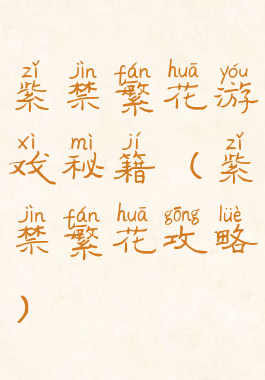 zǐ jìn fán huā yóu
紫禁繁花游
xì mì jí zǐ
戏秘籍(紫
jìn fán huā gōng lüè
禁繁花攻略
)